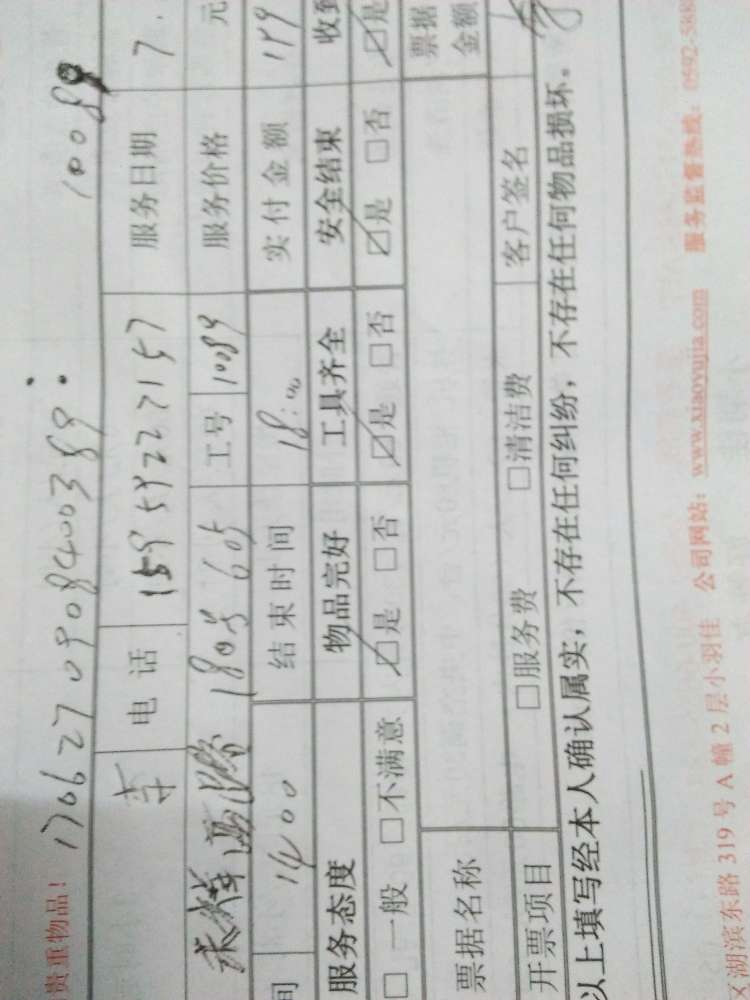 贵重物品! 1706270908400389 10089
电话 15959227157 服务日期 7.
180号605 工号 10089 服务价格 元
间 14:00 结束时间 18:00 实付金额 149
服务态度 物品完好 工具齐全 安全结束 收到
□ 一般 □不满意 ☑是 □否 ☑是 □否 ☑是 □否 ☑是
票据名称 票据金额
开票项目 □服务费 □清洁费 客户签名
以上填写经本人确认属实,不存在任何纠纷,不存在任何物品损坏。
区湖滨东路 319 号 A 幢 2 层小羽佳 公司网站:www.xiaoyujia.com 服务监督热线:0592-5